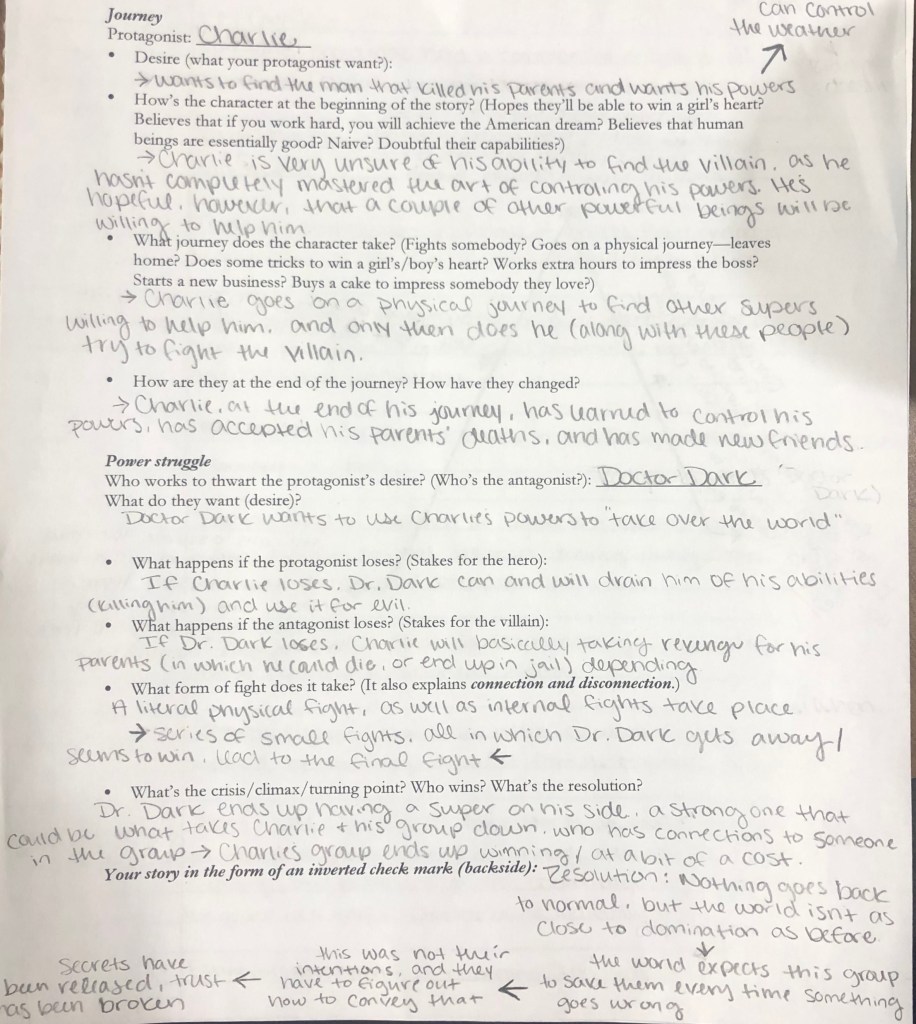 Journey
can control
Protagonist: Charlie
the weather
• Desire (what your protagonist want?):
→ wants to find the man that killed his parents and wants his powers
• How's the character at the beginning of the story? (Hopes they'll be able to win a girl's heart?
Believes that if you work hard, you will achieve the American dream? Believes that human
beings are essentially good? Naive? Doubtful their capabilities?)
→ Charlie is very unsure of his ability to find the villain, as he
hasn't completely mastered the art of controling his powers. He's
hopeful, however, that a couple of other powerful beings will be
willing to help him
• What journey does the character take? (Fights somebody? Goes on a physical journey—leaves
home? Does some tricks to win a girl's/boy's heart? Works extra hours to impress the boss?
Starts a new business? Buys a cake to impress somebody they love?)
→ Charlie goes on a physical journey to find other supers
willing to help him, and only then does he (along with these people)
try to fight the villain.
• How are they at the end of the journey? How have they changed?
→ Charlie, at the end of his journey, has learned to control his
powers, has accepted his parents' deaths, and has made new friends.
Power struggle
Who works to thwart the protagonist's desire? (Who's the antagonist?): Doctor Dark
What do they want (desire)?
Doctor Dark wants to use Charlies powers to "take over the world"
• What happens if the protagonist loses? (Stakes for the hero):
If Charlie loses, Dr. Dark can and will drain him of his abilities
(killing him) and use it for evil.
• What happens if the antagonist loses? (Stakes for the villain):
If Dr. Dark loses, Charlie will basically taking revenge for his
parents (in which he could die, or end up in jail) depending
• What form of fight does it take? (It also explains connection and disconnection.)
A literal physical fight, as well as internal fights take place.
→ series of small fights, all in which Dr. Dark gets away/
seems to win, lead to the final fight ←
• What's the crisis/climax/turning point? Who wins? What's the resolution?
Dr. Dark ends up having a super on his side, a strong one that
could be what takes Charlie + his group down, who has connections to someone
in the group → Charlies group ends up winning/ at a bit of a cost.
Your story in the form of an inverted check mark (backside):
Resolution: Nothing goes back
to normal, but the world isnt as
close to domination as before.
↓
the world expects this group
to save them every time something
goes wrong
← this was not their
intentions, and they
have to figure out
how to convey that
← Secrets have
been released, trust
has been broken